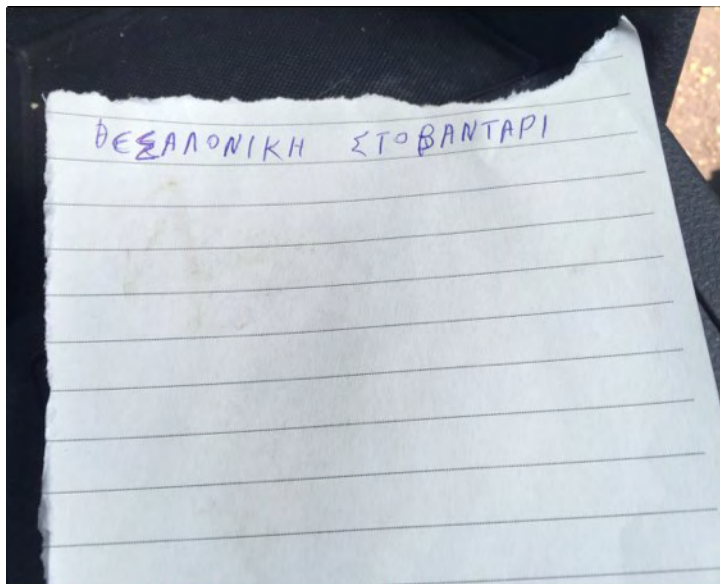 ΘΕΣΑΛΟΝΙΚΗ ΣΤΟΒΑΝΤΑΡΙ